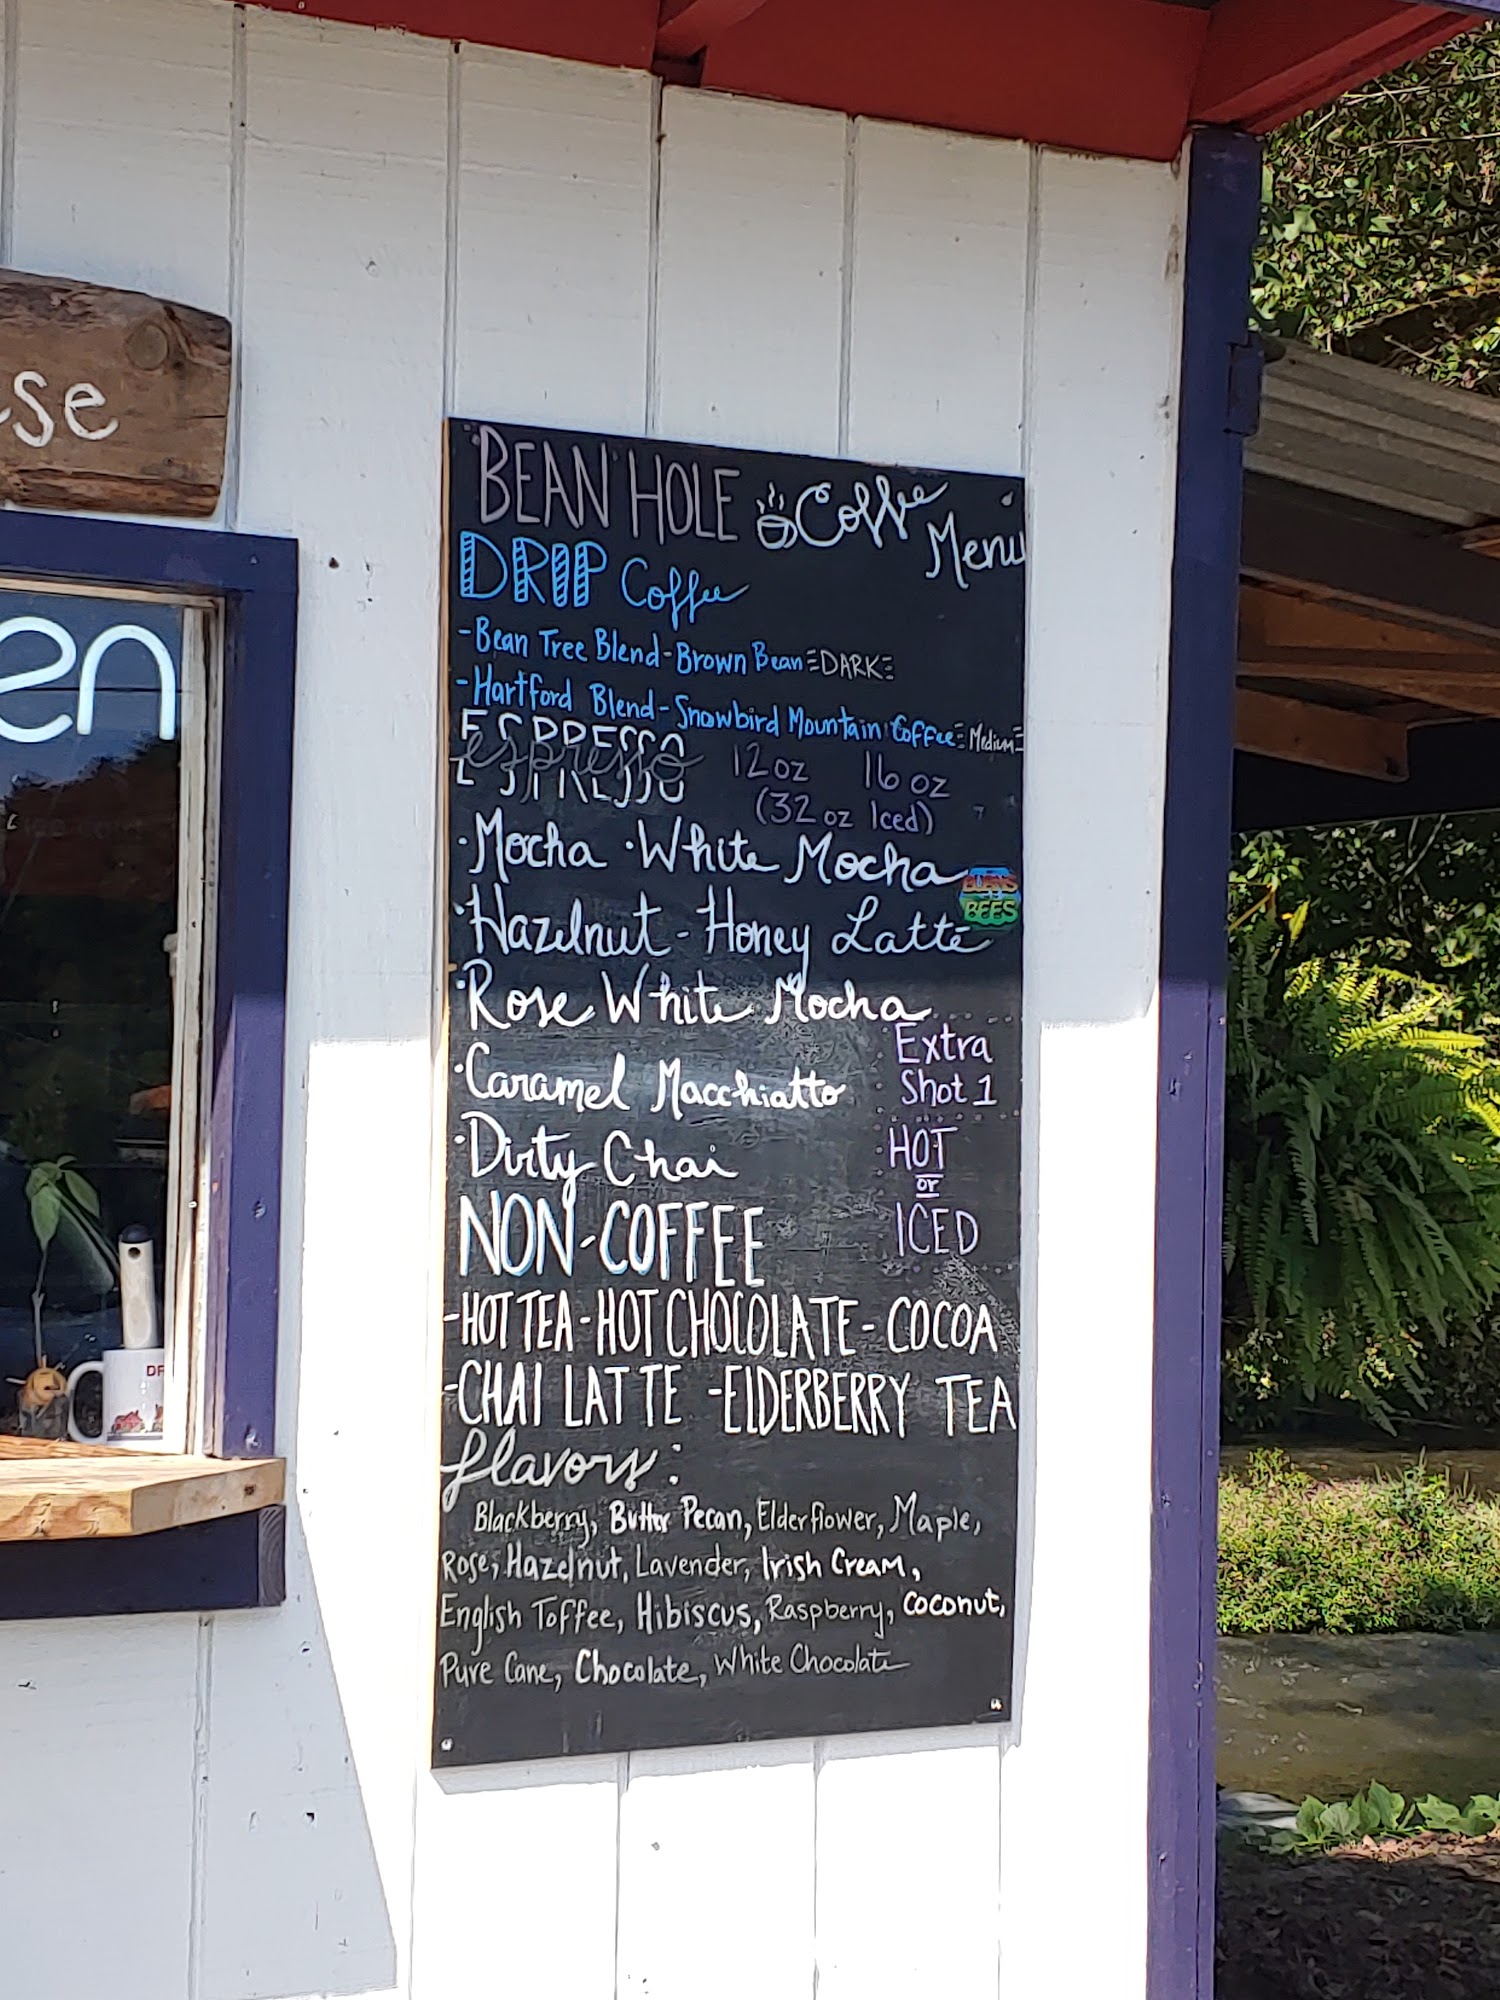 se
en
"BEAN" HOLE Coffee Menu
DRIP Coffee
-Bean Tree Blend-Brown Bean DARK
-Hartford Blend-Snowbird Mountain Coffee Medium
ESPRESSO espresso 12 oz 16 oz
(32 oz Iced)
·Mocha ·White Mocha
BEES
·Hazelnut-Honey Latte
·Rose White Mocha
Extra
Shot 1
·Caramel Macchiatto
HOT
or
ICED
·Dirty Chai
NON-COFFEE
-HOT TEA-HOT CHOCOLATE-COCOA
-CHAI LATTE -ElDERBERRY TEA
flavors:
Blackberry, Butter Pecan, Elderflower, Maple,
Rose, Hazelnut, Lavender, Irish Cream,
English Toffee, Hibiscus, Raspberry, Coconut,
Pure Cane, Chocolate, White Chocolate